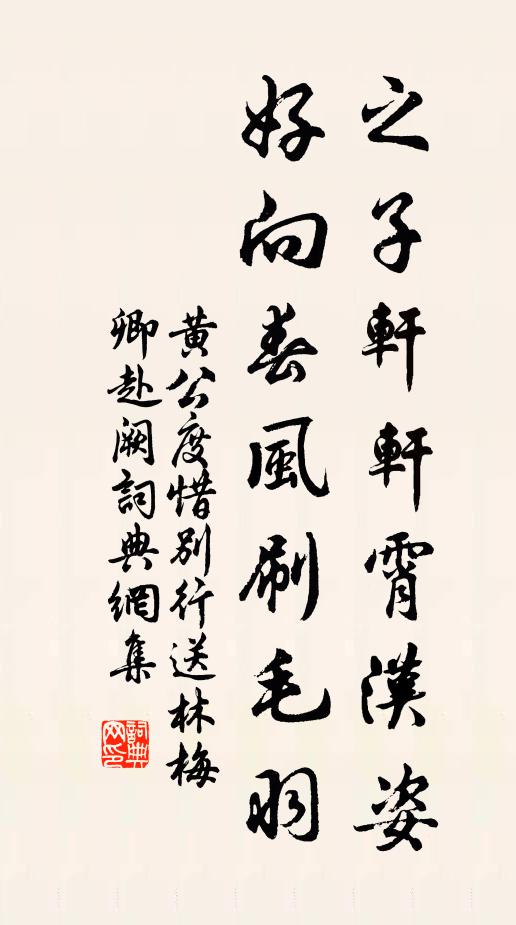 之子軒軒霄漢姿
好向春風刷毛羽
黃公度惜別行送林梅
卿赴闕詞典網集
詞典
网印